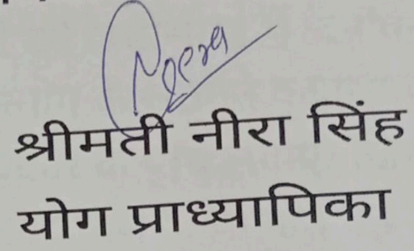 Neera
श्रीमती नीरा सिंह
योग प्राध्यापिका